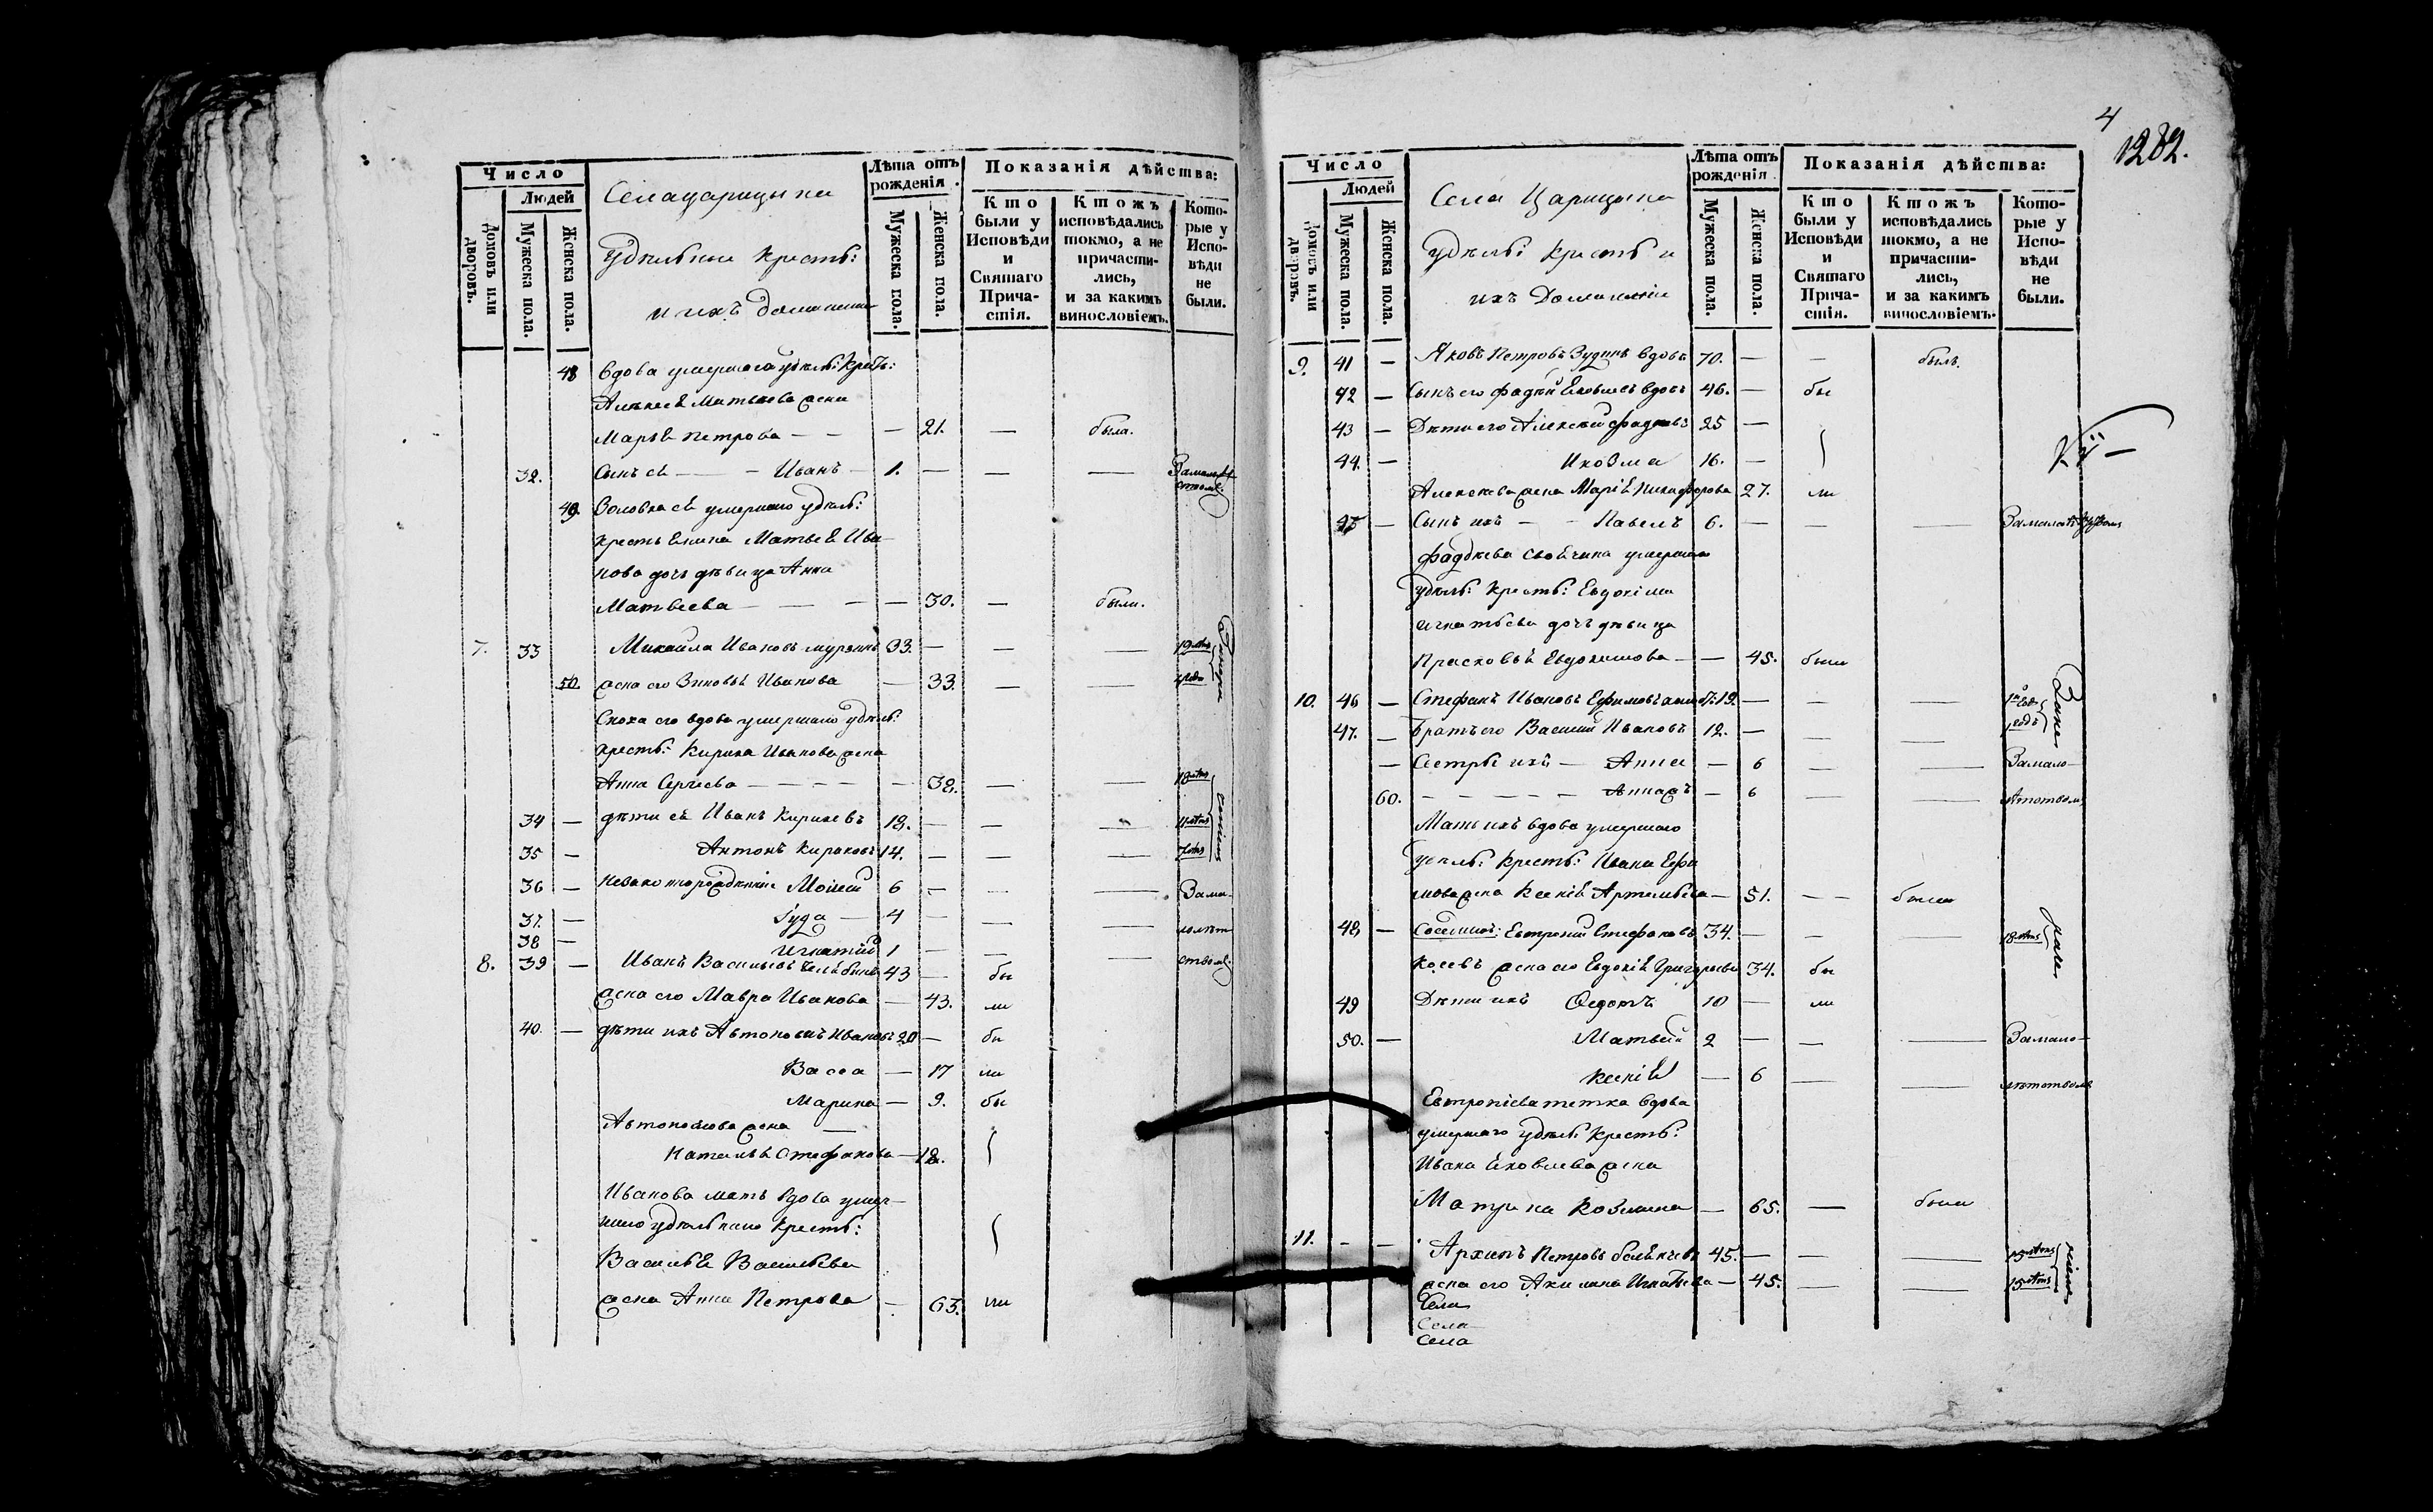 Число
Людей
Домовъ или дворовъ.
Мужеска пола.
Женска пола.
Села царицына
Удѣльные крестъ:
и ихъ домашние
Лѣта отъ рожденія.
Мужеска пола.
Женска пола.
Показанія дѣйства:
Кто были у Исповѣди и Святаго Причастія.
Ктожъ исповѣдались токмо, а не причастились, и за какимъ винословіемъ.
Которые у Исповѣди не были.
48 вдова умершаго удѣль: Крест:
Алексея Матвеева жена
Марья Петрова — — — 21. — была.
32. Сынъ ея — — Иванъ — 1. — — —
49. Золовка ея умершаго удѣль:
крестьянина Матвея Ива-
нова дочь дѣвица Анна
Матвеева — — — — 30. — были.
7. 33 Михаила Ивановъ 33. — — — 19 лѣтъ
50. жена его Зиновья Иванова — 33. — —
Сноха его вдова умершаго удѣль:
крестъ: Кирила Иванова жена
Анна Сергеева — — — — — 38. — — 18 лѣтъ
34 — дѣти ея Иванъ Кириловъ 18. — — —
35 — Антонъ Кириловъ 14. — — —
36 — Моисей 6 — — — Замa-
37. — Iуда — 4 — — — лолѣт
38 — Игнатий 1 — — — ством:
8. 39 — Иванъ Васильевъ 43 — бы
жена его Мавра Иванова — 43. ли
40. — дѣти ихъ Автономъ Ивановъ 20 — бы
Васса — 17 ли
Марина — 9. бы
Автономова жена —
Наталья Стефанова — 18.
Иванова мать вдова умер-
шаго удѣльнаго крестъ:
Василья Васильева
жена Анна Петрова — 63. ли
4
1282.
Число
Людей
Домовъ или дворовъ.
Мужеска пола.
Женска пола.
Села Царицына
удѣль: крестъ и
ихъ Домашние
Лѣта отъ рожденія.
Мужеска пола.
Женска пола.
Показанія дѣйства:
Кто были у Исповѣди и Святаго Причастія.
Ктожъ исповѣдались токмо, а не причастились, и за какимъ винословіемъ.
Которые у Исповѣди не были.
9. 41 — Яковъ Петровъ Зудинъ вдовъ 70. — — былъ.
42 — Сынъ его Фадѣй Яковлевъ вдовъ 46. — бы
43 — Дѣти его Алексѣй Фадеевъ 25 —
44. — Козма 16. —
Алексеева жена Марія Никифорова 27. ли
45 — Сынъ ихъ — — Павелъ 6. — — —
Фаддѣева своячина умершаго
удѣль: крестъ: Евдокима
Игнатьева дочь дѣвица
Прасковья Евдокимова — — 45. были
10. 46 — Стефанъ Ивановъ Ефимовъ 19. — — —
47. — Братъ его Василий Ивановъ 12. — — — 1 годъ
— Сестры ихъ — Анна — 6 — — Замало-
60. — — — — — Анна жъ — 6 — — лѣтством
Мать ихъ вдова умершаго
удѣль: крестъ: Ивана Ефи
мова жена Ксенія Артемьева — 51. — — была
48 — Евтропий Стефановъ 34. — — — 18 лѣтъ
жена его Евдокія Григорьева 34. бы
49 Дѣти ихъ Федотъ 10 — ли
50. — Матвей 2 — — — Замало-
Ксенія — 6 — — лѣтством
Евтропіева тетка вдова
умершаго удѣль: крестъ:
Ивана Яковлева жена
Матрина Козмина — 65. — были
11. — — Архипъ Петровъ 45. — — — 15 лѣтъ
жена его Акилина Игнатьева — 45. — — 15 лѣтъ
Села
Села
Села